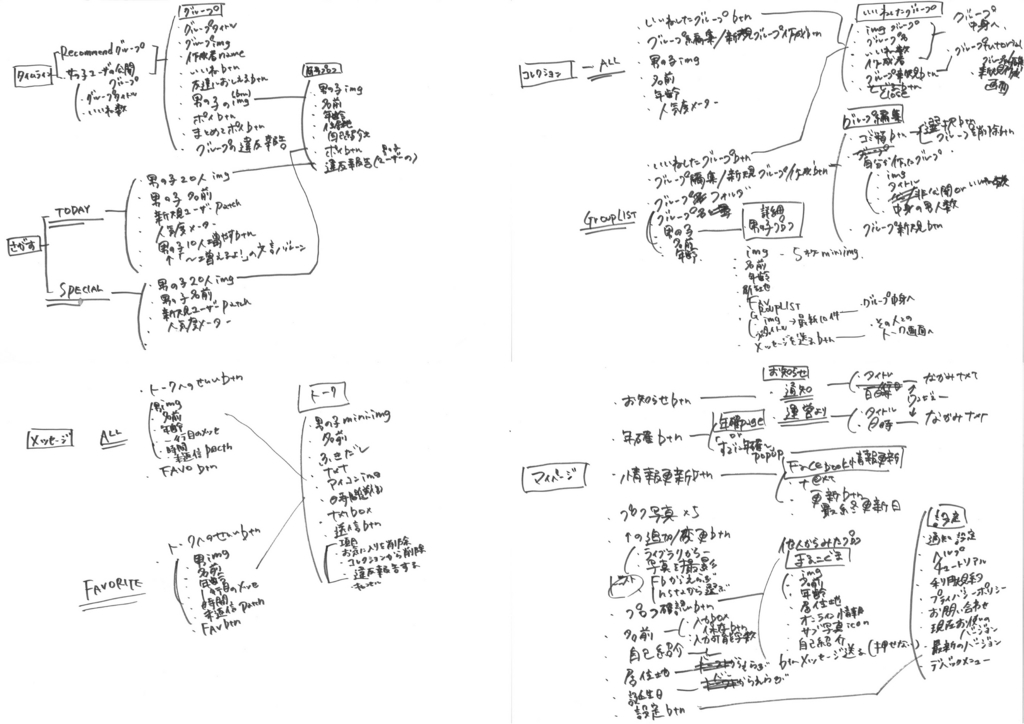 タイムライン
Recommendグループ
女の子ユーザの公開グループ
グループタイトル
いいね数
グループ
グループタイトル
グループimg
作成者name
いいねbtn
友達におしえるbtn
男の子のimg
ポイbtn
まとめてポイbtn
グループの違反報告
男の子img
名前
年齢
居住地
自己紹介文
ポイbtn
違反報告(ユーザーの)
さがす
TODAY
男の子20人img
男の子名前
新規ユーザーpatch
人気度メーター
男の子10人増やすbtn
SPECIAL
男の子20人img
男の子名前
新規ユーザーpatch
人気度メーター
コレクション
ALL
いいねしたグループbtn
グループ編集/新規グループ作成btn
男の子img
名前
年齢
人気度メーター
いいねしたグループ
imgグループ
グループ名
いいね数
作成者
グループ新規btn
とじるbtn
close
グループ中身へ
GROUPLIST
いいねしたグループbtn
グループ編集/新規グループ作成btn
グループ名フォルダ
グループ名
男の子
名前
年齢
グループ編集
ゴミ箱btn
選択btn
グループ削除btn
自分が作ったグループ
img
タイトル
中身の男人数
グループ新規btn
詳細
男の子プロフ
img
5枚miniimg
名前
年齢
居住地
FAV
GROUPLIST
img→最新1件
タイトル
グループ中身へ
メッセージを送るbtn
その人とのトーク画面へ
メッセージ
ALL
トークへのせいいbtn
男img
名前
年齢
一行目のメッセ
時間
未返信patch
FAVO btn
FAVORITE
トークへのせいいbtn
男img
名前
年齢
1行目のメッセ
時間
未返信patch
FAV btn
トーク
男の子miniimg
名前
ふきだし
txt
マイコンimg
txtbox
送信btn
項目
お気に入りを削除
コレクションから削除
違反報告する
キャンセル
マイページ
お知らせbtn
お知らせ
通知
タイトル
日時
なかみtxt
運営より
タイトル
日時
なかみtxt
年確btn
年確page
or
すでに年確しpopup
情報更新btn
Facebook情報更新
更新btn
最終更新日
プロフ写真×5
↑の追加/変更btn
ライブラリから
写真を撮影
Fbからえらぶ
Instaから選ぶ
プロフ確認btn
他人からみたプロフ
img
名前
年齢
居住地
オンライン情報
サブ写真icon
自己紹介
btnメッセージ送る(押せない)
名前
入力box
保存btn
入力可能字数
自己紹介
居住地
からえらぶ
誕生日
からえらぶ
設定btn
設定
通知設定
ヘルプ
チュートリアル
利用規約
プライバシーポリシー
お問い合わせ
現在お使いのバージョン
最新のバージョン
デバックメニュー